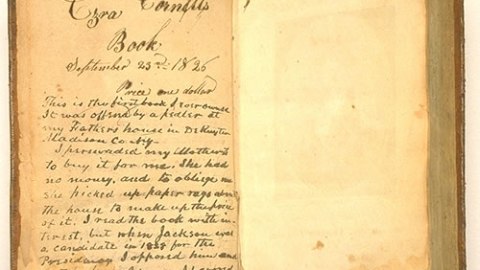 Ezra Cornell's
Book
September 23rd 1826
Price one dollar
This is the first book I ever owned
It was offered by a pedler at
my Fathers house in DeRuyter
Madison County.
I persuaded my Mother
to buy it for me. She had
no money, and to oblige me
she picked up paper rags about
the house to make up the price
of it. I read the book with in-
terest, but when Jackson was
a candidate in 1828 for the
Presidency I opposed him and